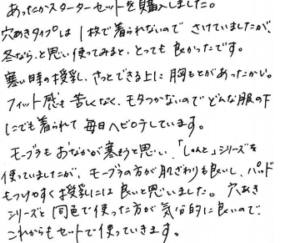 あったかスターターセットを購入しました。
穴あきタイプは1枚で着られないので さけていましたが、
冬なら、と思い使ってみると、とっても良かったです。
寒い時の授乳、さっとできる上に胸もとがあったかい。
フィット感も苦しくなく、モタつかないのでどんな服の下
にでも着られて毎日ヘビロテしています。
モーブラもおなかが寒そうと思い、「しゃんと」シリーズを
使っていましたが、モーブラの方が肌ざわりも良いし、パッド
もつけやすく授乳には良いと思いました。穴あき
シリーズと同色で使った方が気分的に良いので、
これからもセットで使っていきます。